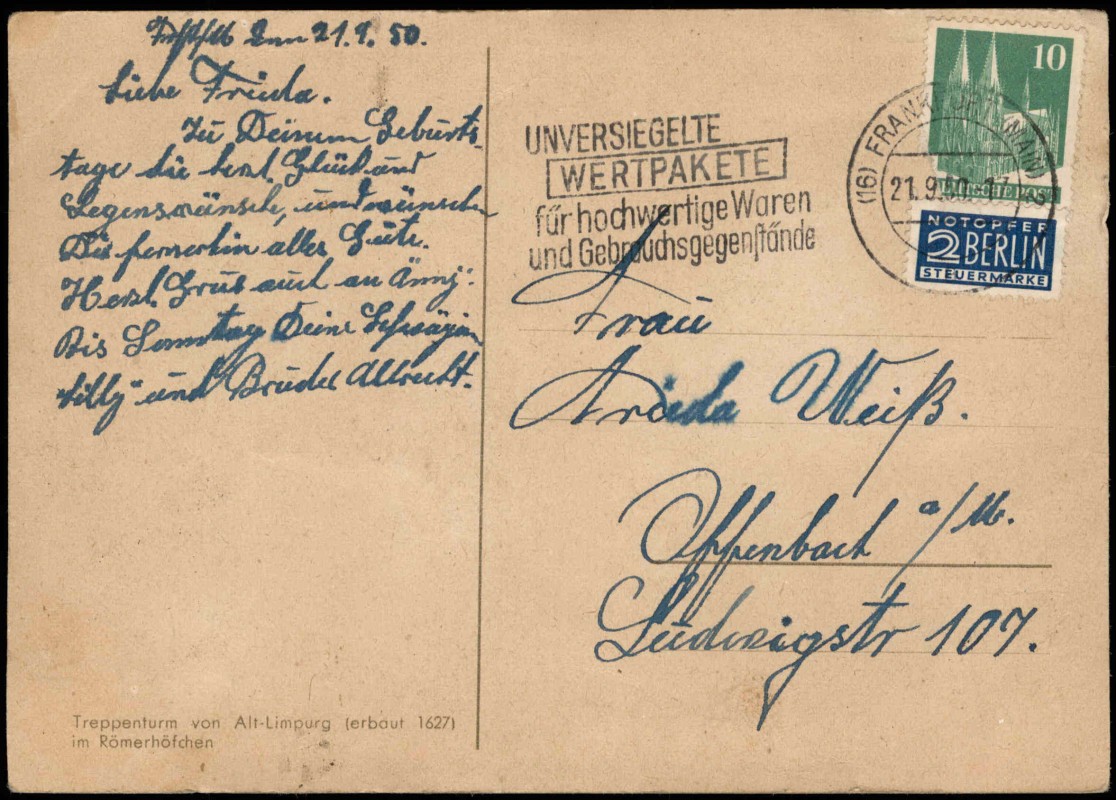 Frkft/M den 21.9.50.
Liebe Frieda.
Zu Deinem Geburts-
tage die herzl. Glück und
Segenswünsche, und wünschen
Dir fernerhin alles Gute.
Herzl. Gruß auch an Änny.
Bis Sonntag Deine Schwägerin
Lilly und Bruder Albrecht.
Treppenturm von Alt-Limpurg (erbaut 1627)
im Römerhöfchen
UNVERSIEGELTE
WERTPAKETE
für hochwertige Waren
und Gebrauchsgegenstände
(16) FRANKFURT (MAIN)
21.9.50
10
DEUTSCHE POST
NOTOPFER
2 BERLIN
STEUERMARKE
Frau
Frieda Weiß.
Offenbach a/M.
Ludwigstr 107.